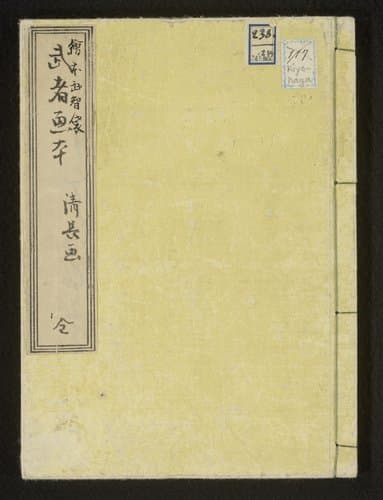 繪本武智袋
武者画本
清長画
全
238.
717.
Kiyo-
naga